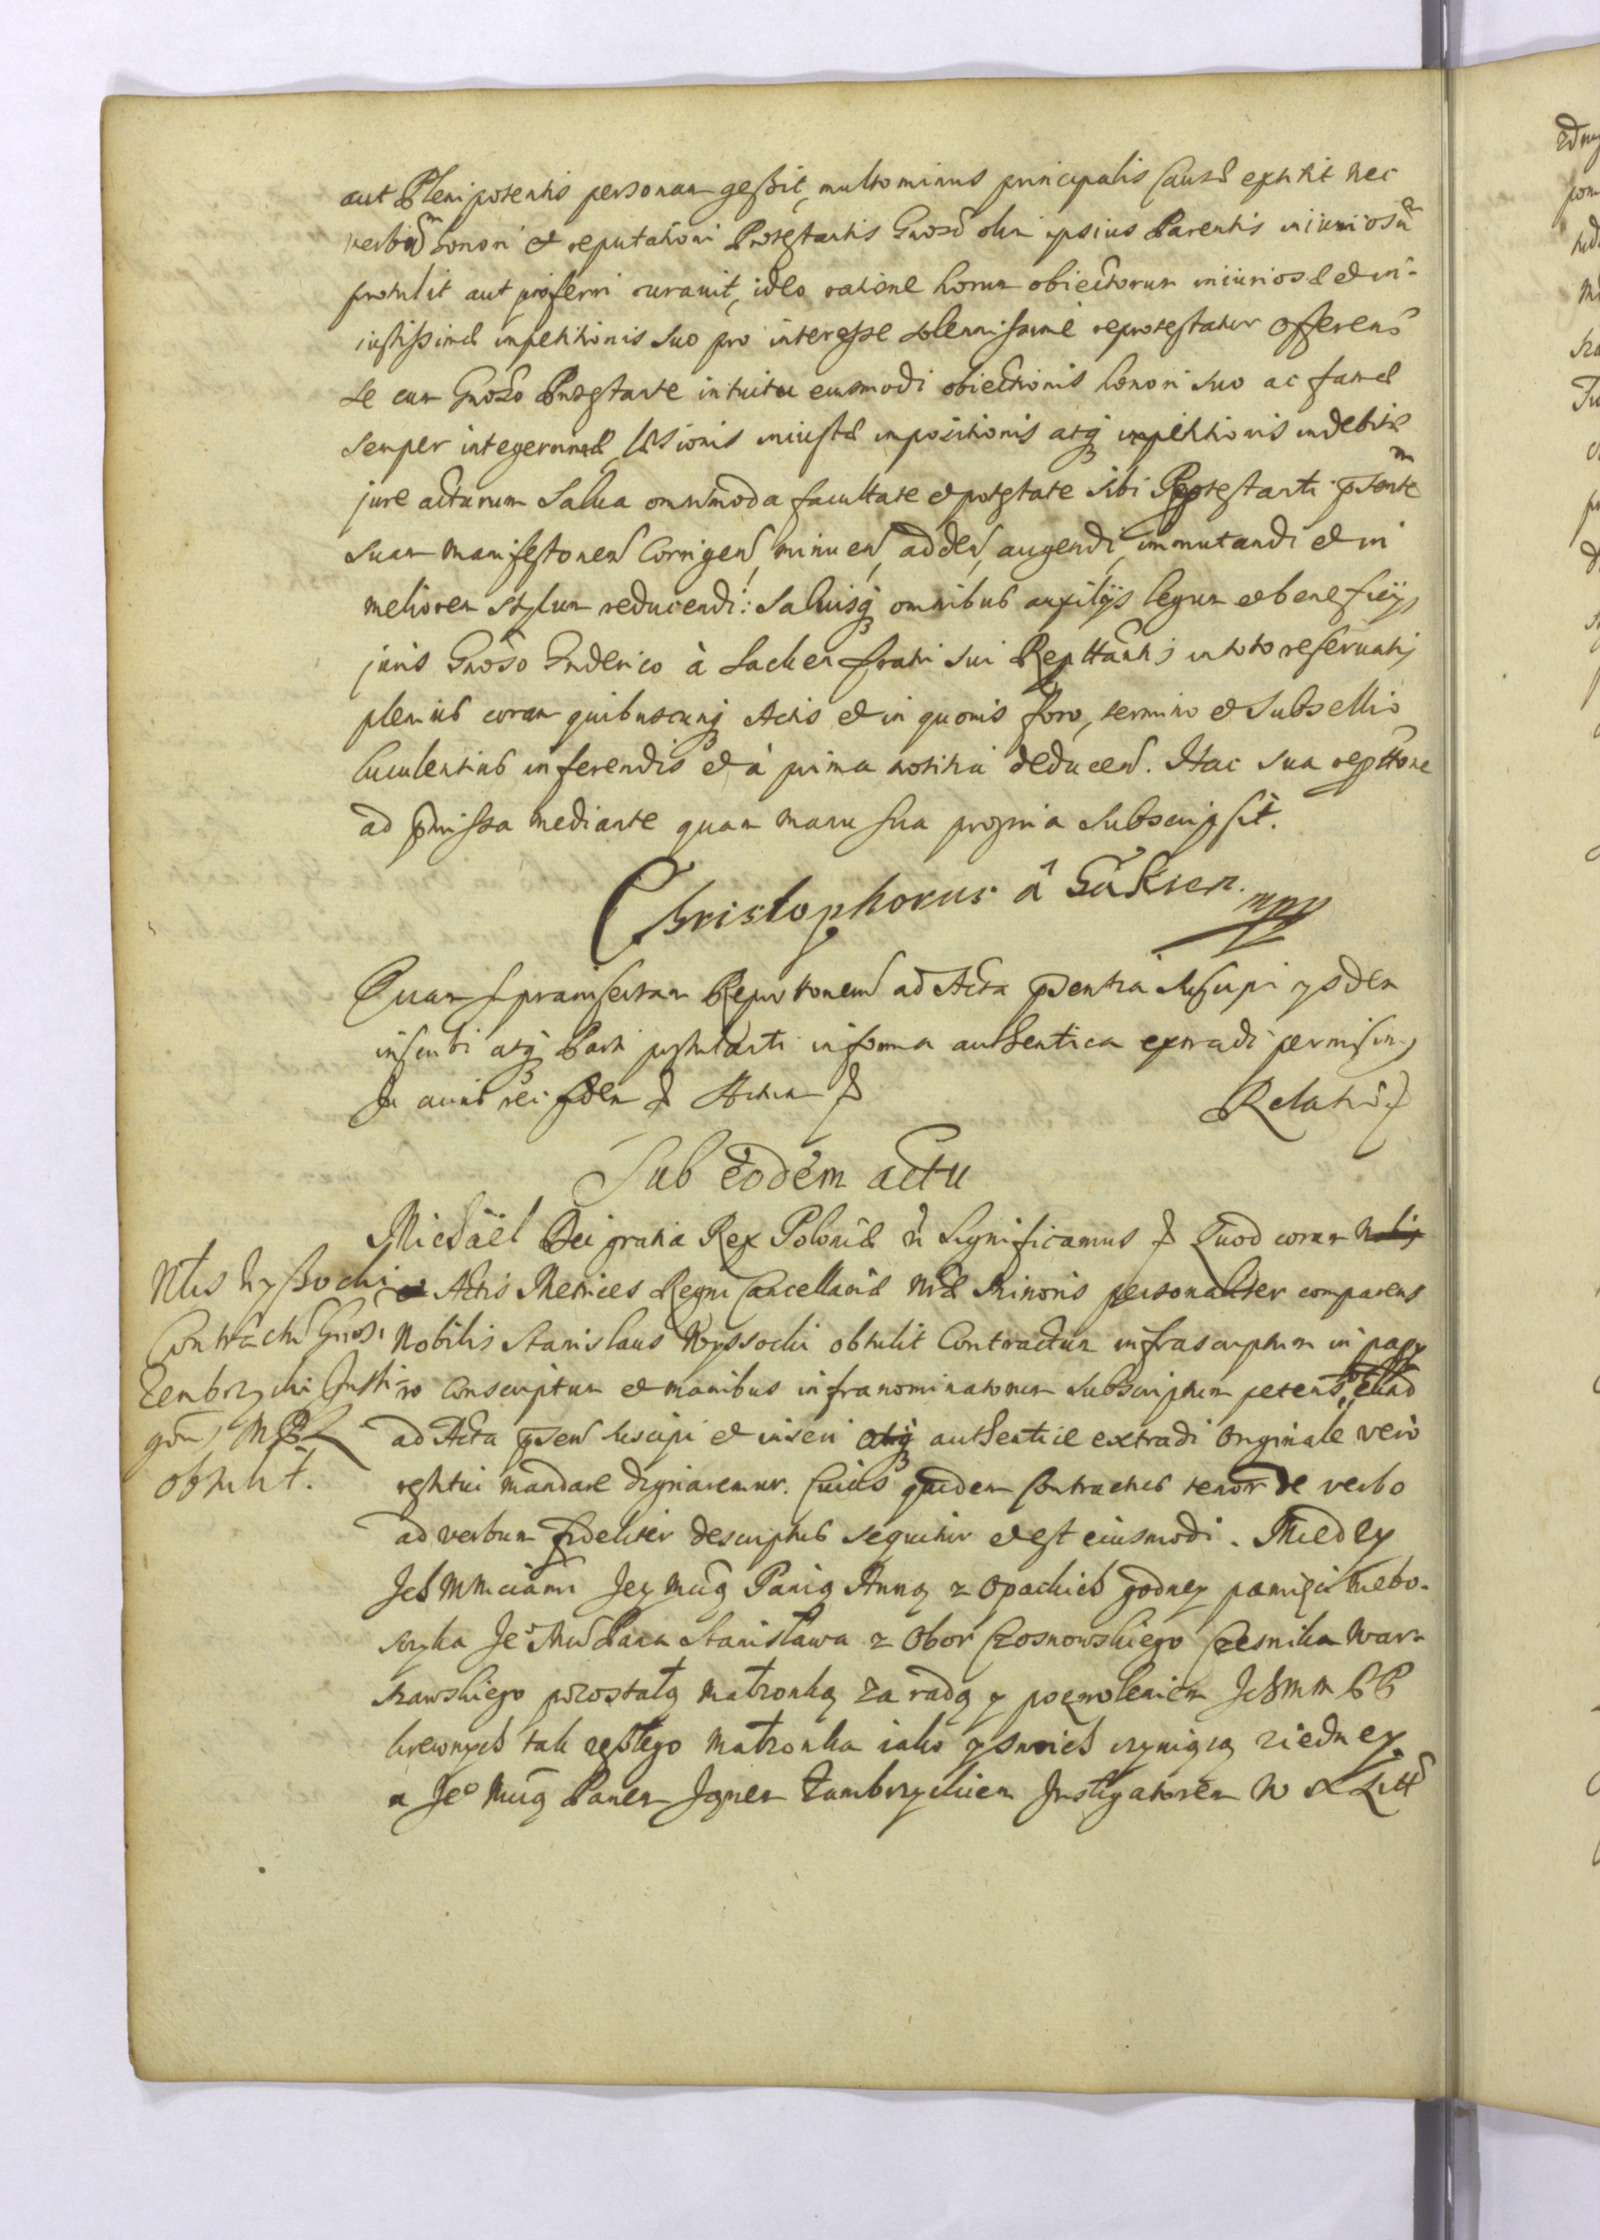 aut Plenipotentis personam gessit, multominus principalis Causæ extitit nec
verbum honori et reputationi Protestantis Gnosi olim ipsius Parentis iniuriosum
protulit aut proferri curauit, ideo ratione horum obiectorum iniuriosæ et in-
iustissimæ impetitionis suo pro interesse solennissime reprotestatur offerens
se cum Gnoso Protestante intuitu eiusmodi obiectionis honori suo ac famæ
semper integerrimæ læsionis iniustæ impositionis atq impetitionis indebitæ
jure acturum Salua omnimoda facultate et potestate sibi Reprotestanti psentem
suam manifestonem Corrigen, minuen, adden, augendi, immutandi et in
meliorem stylum reducendi: Saluisq omnibus auxilijs legum et beneficijs
juris Gnoso Friderico à Sacken fratri sui Repttantis in toto reseruatis
plenius coram quibuscunq Actis et in quouis foro, termino et Subsellio
luculentius inferendis et à prima notitia deducen. Hac sua repttone
ad pmissa mediante quam manu sua propria Subscripsit.
Christophorus â Sacken mpp
Quam suprainsertam Repro tonem ad Acta psentia suscipi ysdem
inscribi atq Parti postulanti in forma authentica extradi permisim9
In cuius rei fidem Actum
Relatio
Sub eodem actu
Michaël Dei gratia Rex Poloniæ Significamus Quod coram Nobis
et Actis Metrices Regni Cancellariæ Nræ Minoris personaliter comparens
Nobilis Stanislaus Wyssocki obtulit Contractum infrascriptum in papy
ro conscriptum et manibus infranominatorum subscriptum petens, eund
ad Acta psen suscipi et inseri atq authentice extradi Originale vero
restitui mandare dignaremur. Cuius quidem Contractus tenor de verbo
ad verbum fideliter descriptus sequitur et est eiusmodi. Miedzy
Ich Mciami Jey Mcią Panią Anną z Opackich godney pamięci niebo-
szyka Je° Mci Pana Stanisława z Obor Czosnowskiego Czesnika War-
szawskiego pozostałą małzonką za radą y pozwoleniem Ich mm PP
krewnych tak zeszłego małzonka iako y swoich czyniącą ziedney
a Je° Mcią Panem Zambrzyckiem Instygatorem W X Litt
Nlis Wyssocki
Contractu Gnosi
Zembrzycki Insti-
gatoris M D L
obtulit.